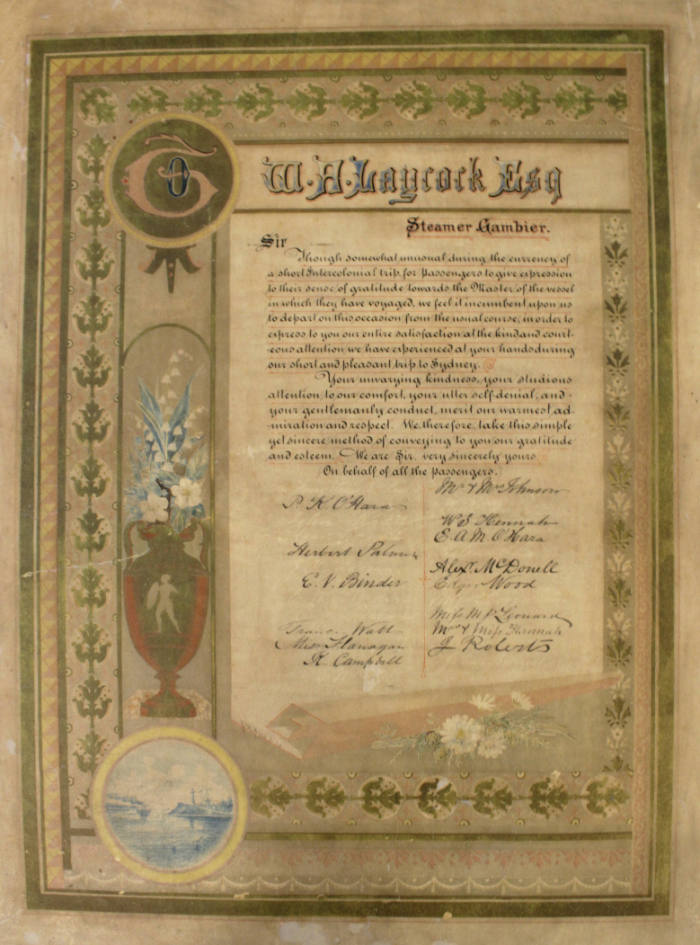 To
W. H. Laycock Esq
Steamer Gambier.
Sir
Though somewhat unusual during the currency of
a short Intercolonial trip, for passengers to give expression
to their sense of gratitude towards the Master of the vessel
in which they have voyaged, we feel it incumbent upon us
to depart on this occasion from the usual course, in order to
express to you our entire satisfaction at the kind and court-
eous attention we have experienced at your hands during
our short and pleasant trip to Sydney.
Your unvarying kindness, your studious
attention to our comfort, your utter self-denial, and
your gentlemanly conduct, merit our warmest ad-
miration and respect. We therefore, take this simple
yet sincere method of conveying to you our gratitude
and esteem. We are Sir, very sincerely yours.
On behalf of all the passengers.
Mr & Mrs Johnson
P. K. O'Hara
W. S. Hennah
E. A. M. O'Hara
Herbert
Alexr. McDonell
E. V. Binder
Edgar Wood
Miss M. Leonard
Watt
Mrs & Miss Hannah
Flanagan
J Roberts
R. Campbell